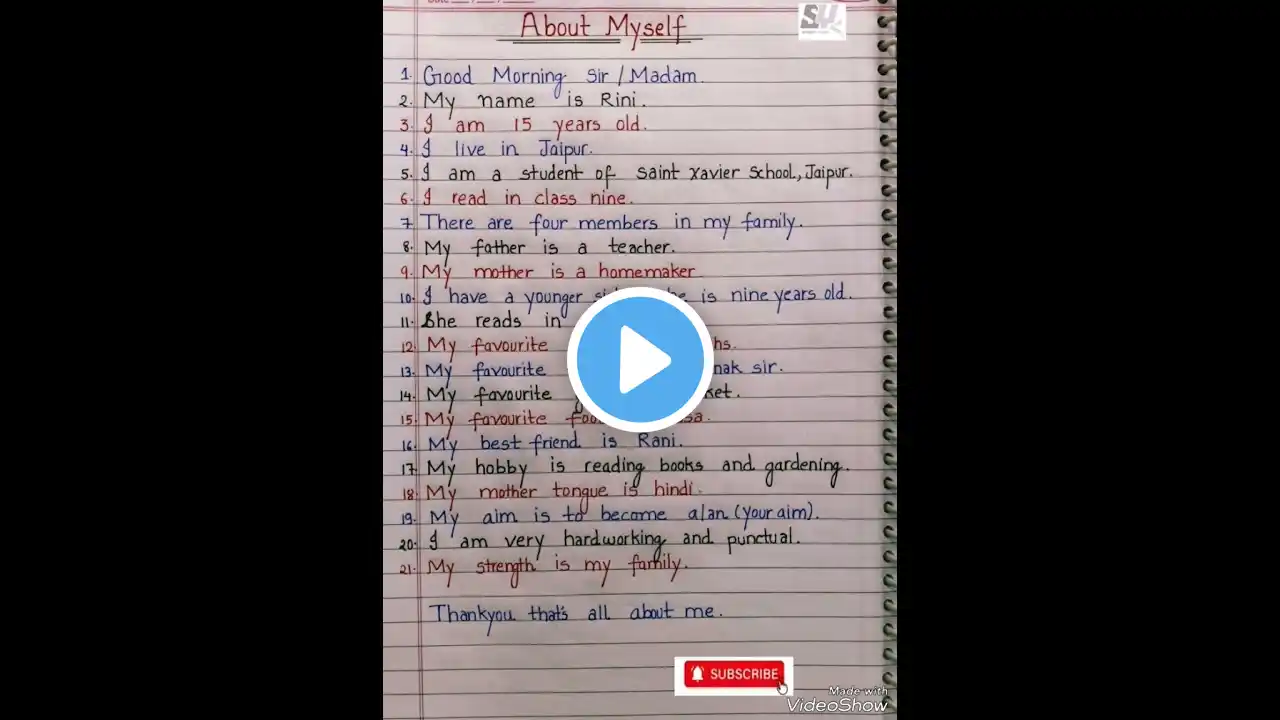 About Myself
1. Good Morning Sir / Madam.
2. My name is Rini.
3. I am 15 years old.
4. I live in Jaipur.
5. I am a student of saint xavier school, Jaipur.
6. I read in class nine.
7. There are four members in my family.
8. My father is a teacher.
9. My mother is a homemaker
10. I have a younger is nine years old.
11. She reads in
12. My favourite
13. My favourite sir.
14. My favourite
15. My favourite
16. My best friend is Rani.
17. My hobby is reading books and gardening.
18. My mother tongue is hindi.
19. My aim is to become a/an (your aim).
20. I am very hardworking and punctual.
21. My strength is my family.
Thankyou that's all about me.
SUBSCRIBE
Made with
VideoShow